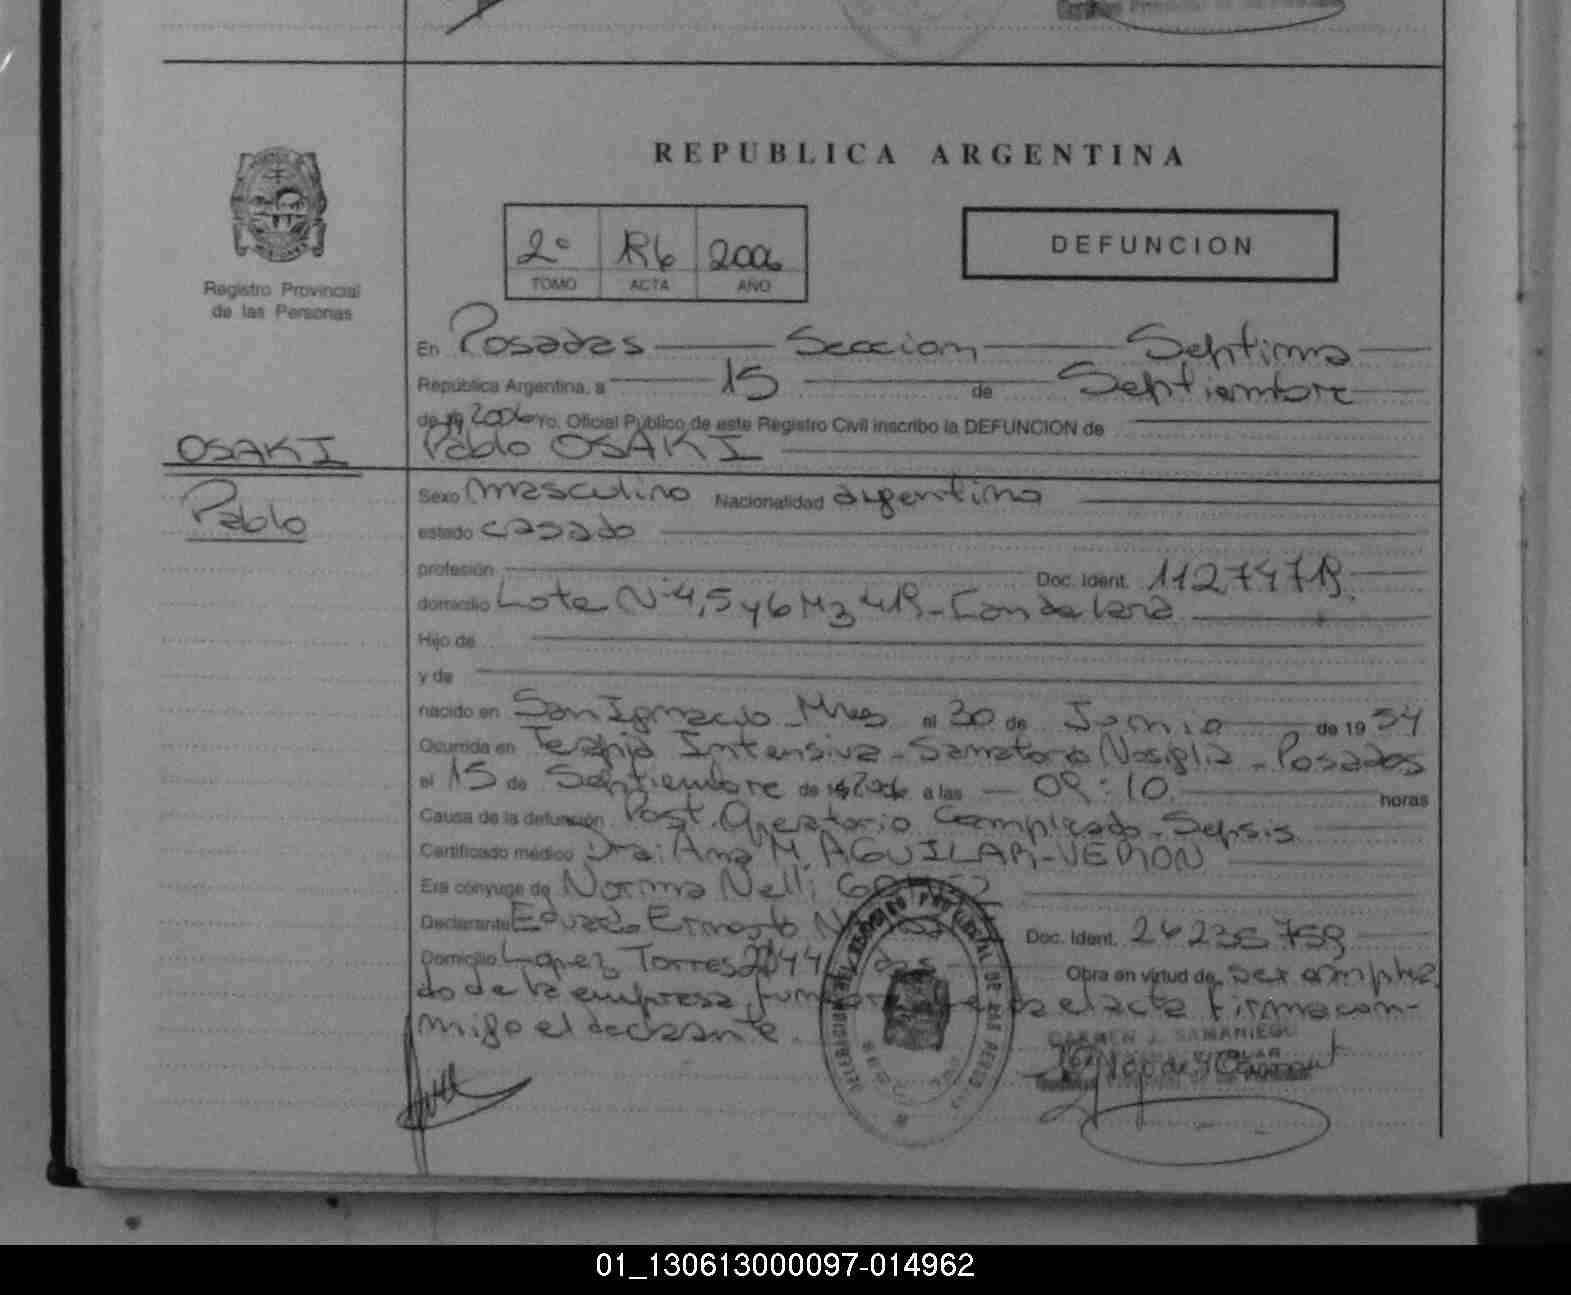 REPUBLICA ARGENTINA
2º 186 2006
TOMO ACTA AÑO
DEFUNCION
Registro Provincial
de las Personas
En Posadas Seccion Septima
República Argentina, a 15 de Septiembre
de 19 2006 Yo, Oficial Público de este Registro Civil inscribo la DEFUNCION de
OSAKI
Pablo
Pablo OSAKI
Sexo masculino Nacionalidad argentino
estado casado
profesión Doc. Ident. 11274718
domicilio Lote Nº 4,5 y 6 Mz 48 - Candelaria
Hijo de
y de
nacido en San Ignacio Mnes el 30 de Junio de 19 54
Ocurrida en Terapia Intensiva - Sanatorio Nosiglia - Posadas
el 15 de Septiembre de 19 2006 a las 08:10 horas
Causa de la defunción Post. Operatorio Complicado - Sepsis
Certificado médico Dra: Ana M. AGUILAR-VERON
Era cónyuge de Norma Nelli
Declarante Eduardo Ernesto Doc. Ident. 24236759
Domicilio Lopez Torres 2844 Obra en virtud de ser emplea
do de la empresa el acta firma con-
migo el declarante
CARMEN J. SAMANIEGO
01_130613000097-014962